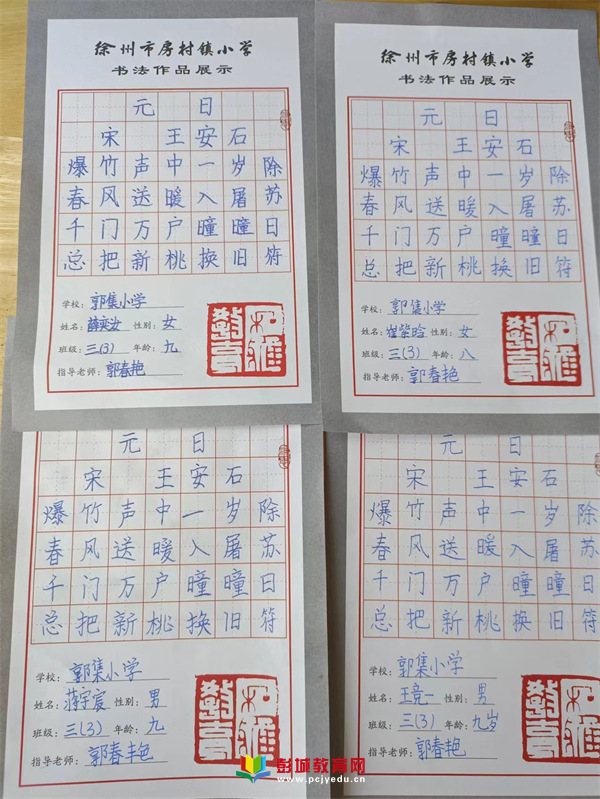 徐州市房村镇小学
书法作品展示
元日
宋 王安石
爆竹声中一岁除
春风送暖入屠苏
千门万户曈曈日
总把新桃换旧符
学校：郭集小学
姓名：薛奕汝 性别：女
班级：三(3) 年龄：九
指导老师：郭春艳
徐州市房村镇小学
书法作品展示
元日
宋 王安石
爆竹声中一岁除
春风送暖入屠苏
千门万户曈曈日
总把新桃换旧符
学校：郭集小学
姓名：崔紫晗 性别：女
班级：三(3) 年龄：八
指导老师：郭春艳
元日
宋 王安石
爆竹声中一岁除
春风送暖入屠苏
千门万户曈曈日
总把新桃换旧符
学校：郭集小学
姓名：蒋宇宸 性别：男
班级：三(3) 年龄：九
指导老师：郭春艳
元日
宋 王安石
爆竹声中一岁除
春风送暖入屠苏
千门万户曈曈日
总把新桃换旧符
学校：郭集小学
姓名：王竞一 性别：男
班级：三(3) 年龄：九岁
指导老师：郭春艳
彭城教育网
www.pcjyedu.cn